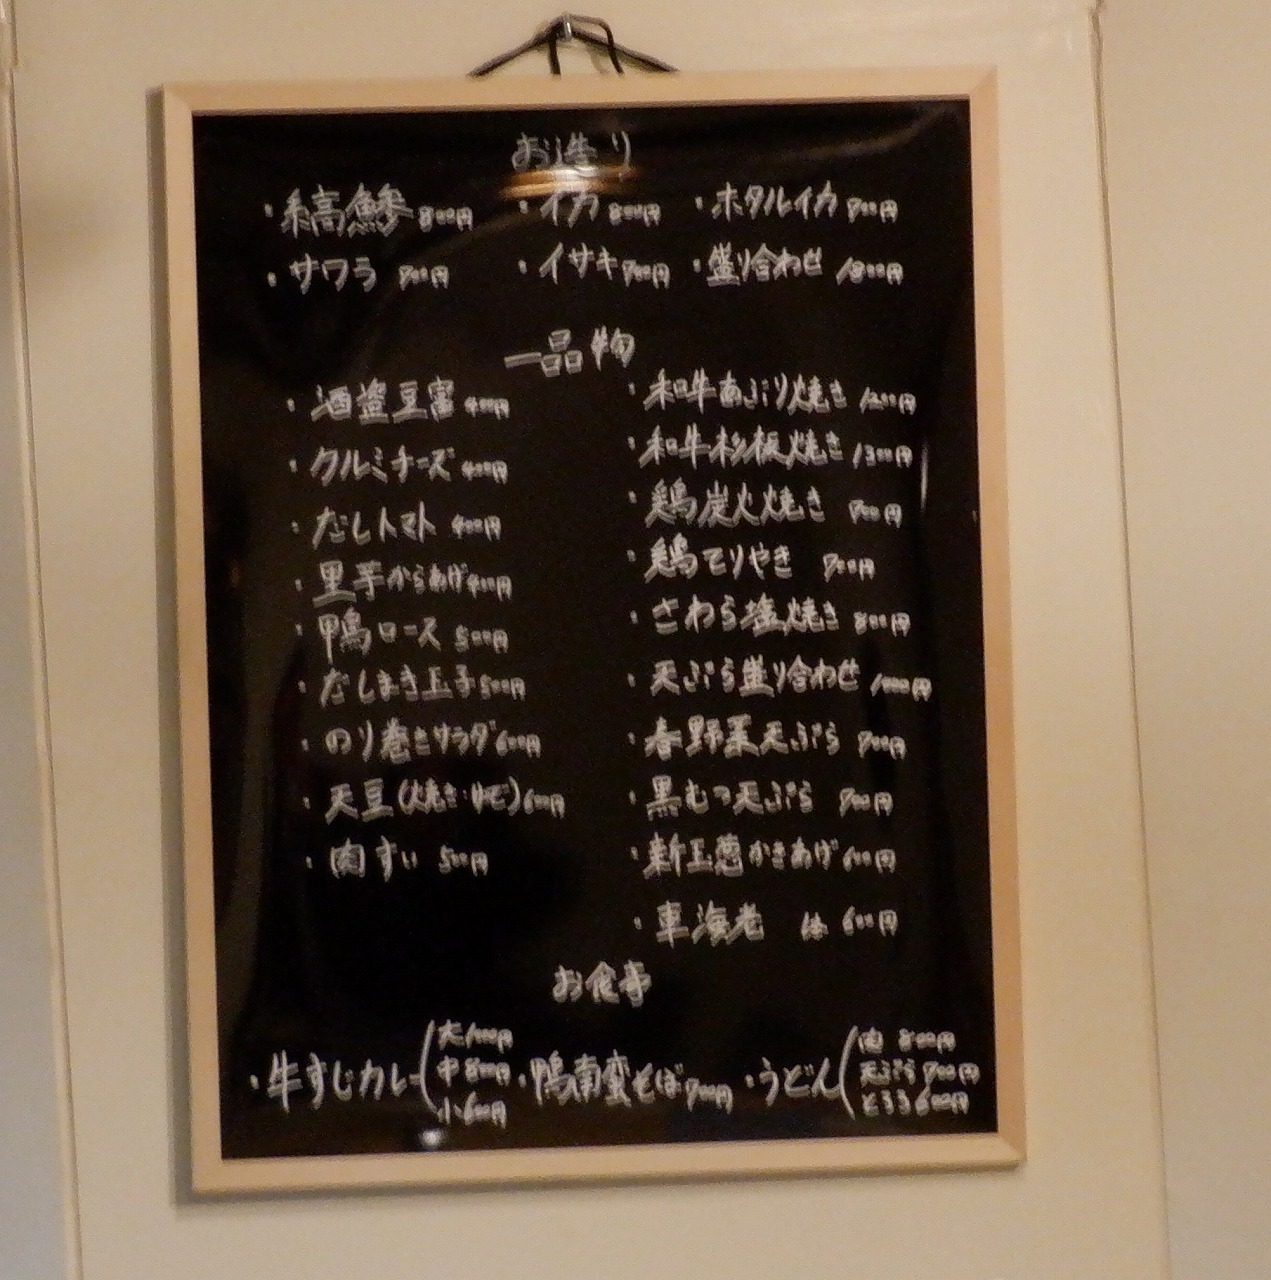 お造り
・秋高鯵 800円 ・イカ 800円 ・ホタルイカ 700円
・サワラ 700円 ・イサキ 700円 ・盛り合わせ 1800円
一品物
・酒盗豆富 400円
・クルミチーズ 400円
・だしトマト 400円
・里芋からあげ 400円
・鴨ロース 500円
・だしまき玉子 500円
・のり巻きサラダ 600円
・天豆(焼き・ゆで) 600円
・肉すい 500円
・和牛あぶり焼き 1200円
・和牛杉板焼き 1300円
・鶏炭火焼き 700円
・鶏てりやき 700円
・さわら塩焼き 800円
・天ぷら盛り合わせ 1000円
・春野菜天ぷら 700円
・黒むつ天ぷら 700円
・新玉葱かきあげ 600円
・車海老 一本 600円
お食事
・牛すじカレー 大1000円 中800円 小600円
・鴨南蛮そば 700円
・うどん 肉 800円 天ぷら 700円 とろろ 600円